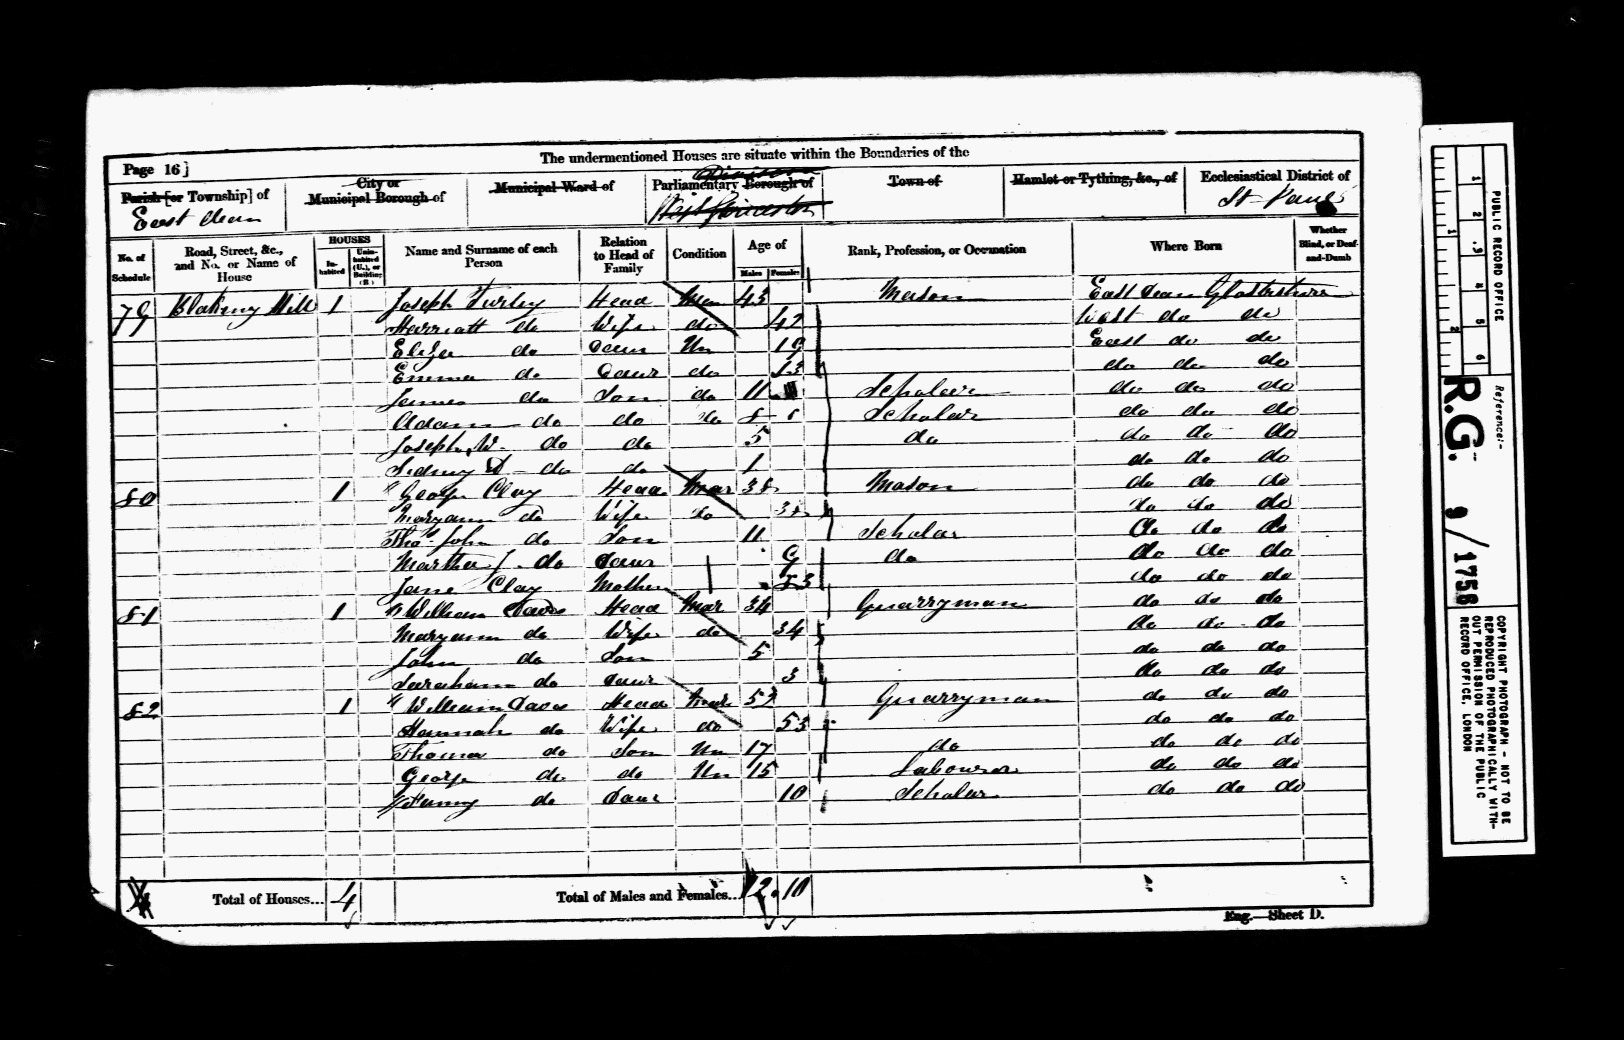 The undermentioned Houses are situate within the Boundaries of the
Page 16]
Parish [or Township] of
East Dean
City or
Municipal Borough of
Municipal Ward of
Parliamentary Borough of
Division
West Gloucester
Town of
Hamlet or Tything, &c., of
Ecclesiastical District of
St Pauls
No. of Schedule Road, Street, &c., and No. or Name of House HOUSES Inhabited Uninhabited (U.), or Building (B.) Name and Surname of each Person Relation to Head of Family Condition Age of Males Females Rank, Profession, or Occupation Where Born Whether Blind, or Deaf-and-Dumb
79 Blakney Hill 1 Joseph Head Mar 43 Mason East Dean
Harriatt do Wife do 42 West do do
Eliza do Daur Un 19 East do do
Emma do Daur do 13 do do do
James do Son do 11 Scholar do do do
Adam do do do 8 Scholar do do do
Joseph W. do do 5 do do do do
Sidney D do do 1 do do do
80 1 George Clay Head Mar 38 Mason do do do
Maryann do Wife do do do do
Thos John do Son 11 Scholar do do do
Martha J. do Daur 9 do do do do
Jane Clay Mother 83 do do do
81 1 William Davis Head Mar 34 Quarryman do do do
Maryann do Wife do 34 do do do
John do Son 5 do do do
Sarahann do Daur 3 do do do
82 1 William Davis Head Mar 57 Quarryman do do do
Hannah do Wife do 53 do do do
Thomas do Son Un 17 do do do do
George do do Un 15 Labourer do do do
do Daur 10 Scholar do do do
Total of Houses... 4 Total of Males and Females... 12 10
Eng.—Sheet D.
PUBLIC RECORD OFFICE
1 2 3 4 5 6
1 2
Reference:-
R.G. 9/1756
COPYRIGHT PHOTOGRAPH - NOT TO BE
REPRODUCED PHOTOGRAPHICALLY WITH-
OUT PERMISSION OF THE PUBLIC
RECORD OFFICE, LONDON